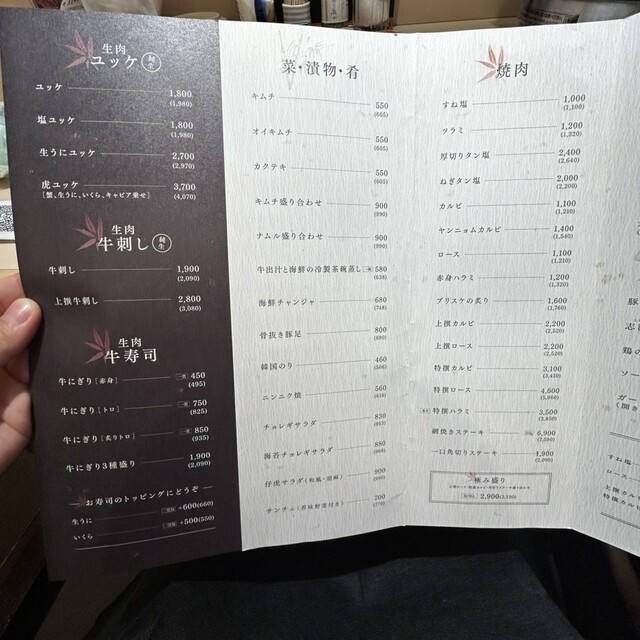 生肉
ユッケ
ユッケ 1,800
(1,980)
塩ユッケ 1,800
(1,980)
生うにユッケ 2,700
(2,970)
虎ユッケ 3,700
[蟹、生うに、いくら、キャビア乗せ] (4,070)
生肉
牛刺し
牛刺し 1,900
(2,090)
上撰牛刺し 2,800
(3,080)
生肉
牛寿司
牛にぎり[赤身] 一貫 450
(495)
牛にぎり[トロ] 一貫 750
(825)
牛にぎり[炙りトロ] 一貫 850
(935)
牛にぎり3種盛り 1,900
(2,090)
お寿司のトッピングにどうぞ
生うに +600(660)
いくら +500(550)
菜・漬物・肴
キムチ 550
(605)
オイキムチ 550
(605)
カクテキ 550
(605)
キムチ盛り合わせ 900
(990)
ナムル盛り合わせ 900
(990)
牛出汁と海鮮の冷製茶碗蒸し 580
(638)
海鮮チャンジャ 680
(748)
骨抜き豚足 800
(880)
韓国のり 460
(506)
ニンニク焼 560
チョレギサラダ 830
海苔チョレギサラダ 880
(968)
仔虎サラダ(和風・胡麻) 900
(990)
サンチュ(香味野菜付き) 700
(770)
焼肉
すね塩 1,000
(1,100)
ツラミ 1,200
(1,320)
厚切りタン塩 2,400
(2,640)
ねぎタン塩 2,000
(2,200)
カルビ 1,100
(1,210)
ヤンニョムカルビ 1,400
(1,540)
ロース 1,100
(1,210)
赤身ハラミ 1,200
(1,320)
ブリスケの炙り 1,600
(1,760)
上撰カルビ 2,200
(2,520)
上撰ロース 2,200
(2,520)
特撰カルビ 3,100
(3,410)
特撰ロース 4,600
(5,060)
特撰ハラミ 3,500
(3,850)
網焼きステーキ 6,900
(7,590)
一口角切りステーキ 1,900
(2,090)
極み盛り
2,900(3,190)
豚
志
鶏の
ソー
ガー
すね塩
ロース
上撰カ
特撰カル